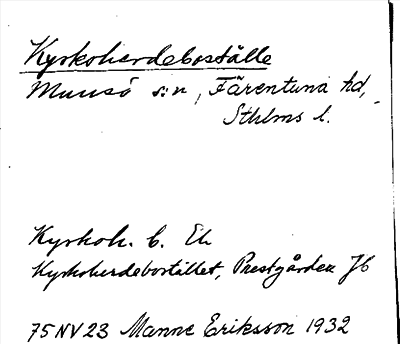 Kyrkoherdeboställe
Munsö s:n, Färentuna hd,
Sthlms l.
Kyrkoh. b. Ek
Kyrkoherdebostället, Prestgården Jb
75 NV 23 Manne Eriksson 1932